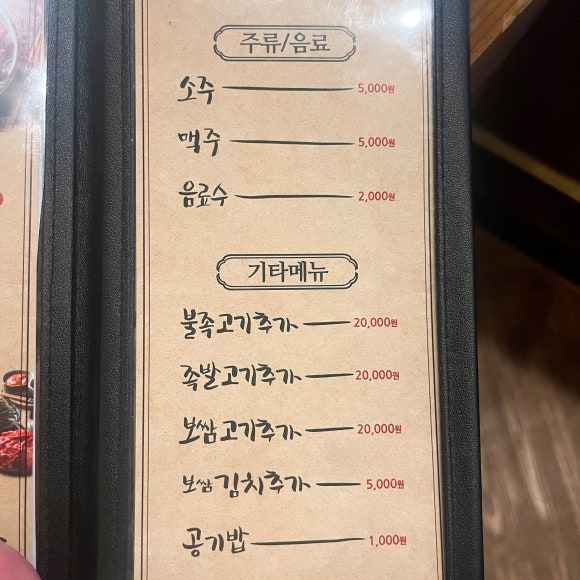 주류/음료
소주 5,000원
맥주 5,000원
음료수 2,000원
기타메뉴
불족고기추가 20,000원
족발고기추가 20,000원
보쌈고기추가 20,000원
보쌈김치추가 5,000원
공기밥 1,000원